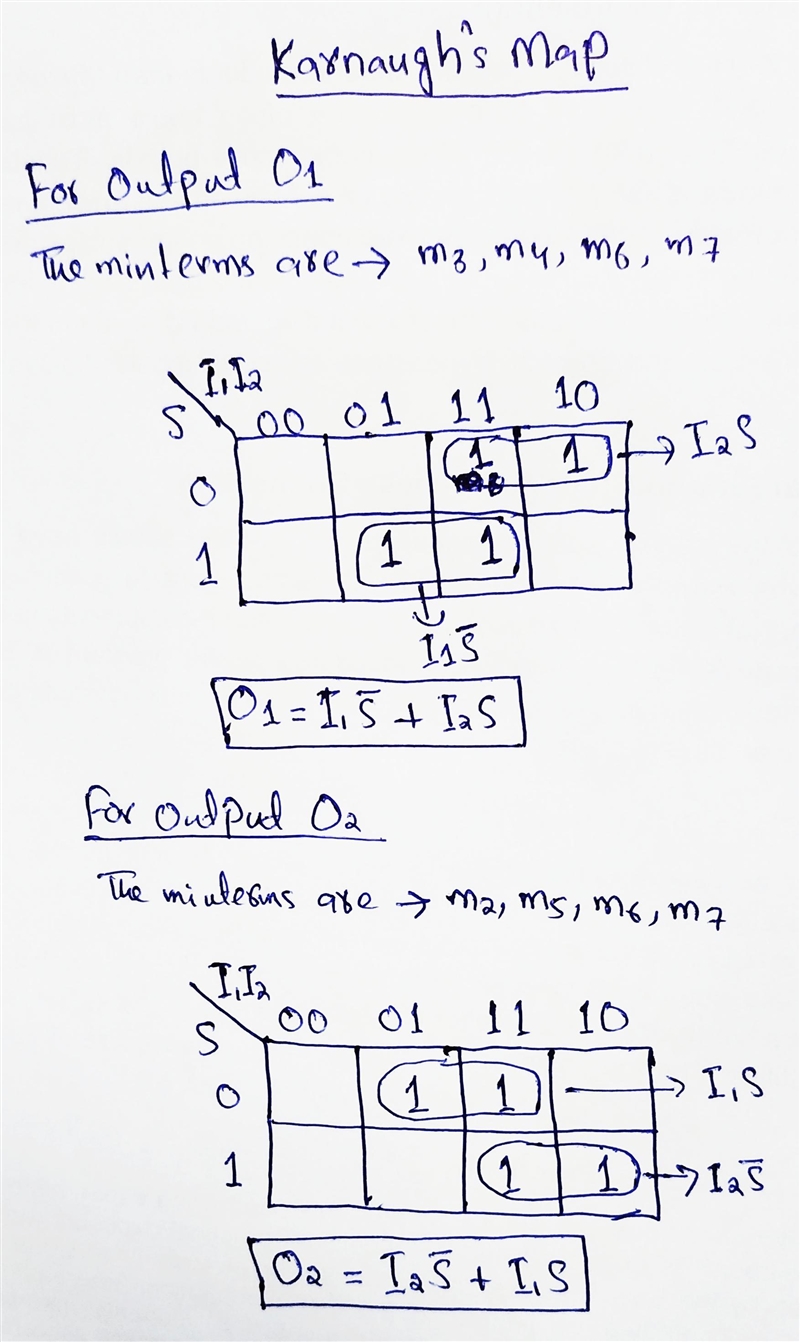 Karnaugh's Map
For Output O1
The minterms are → m3, m4, m6, m7
I1I2
S 00 01 11 10
0 1 1 → I2S
1 1 1
I1S̅
O1 = I1S̅ + I2S
For Output O2
The minterms are → m2, m5, m6, m7
I1I2
S 00 01 11 10
0 1 1 → I1S
1 1 1 → I2S̅
O2 = I2S̅ + I1S